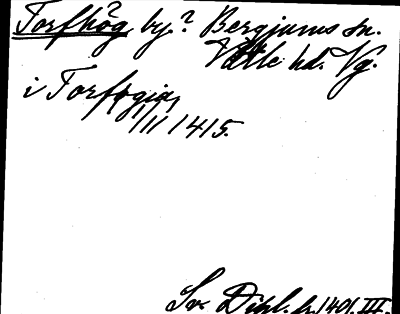 Torfhög? by? Bergjums sn.
Vättle hd. Vg.
i Torfogia,
1/11 1415.
Sv. Dipl. fr. 1401. III.